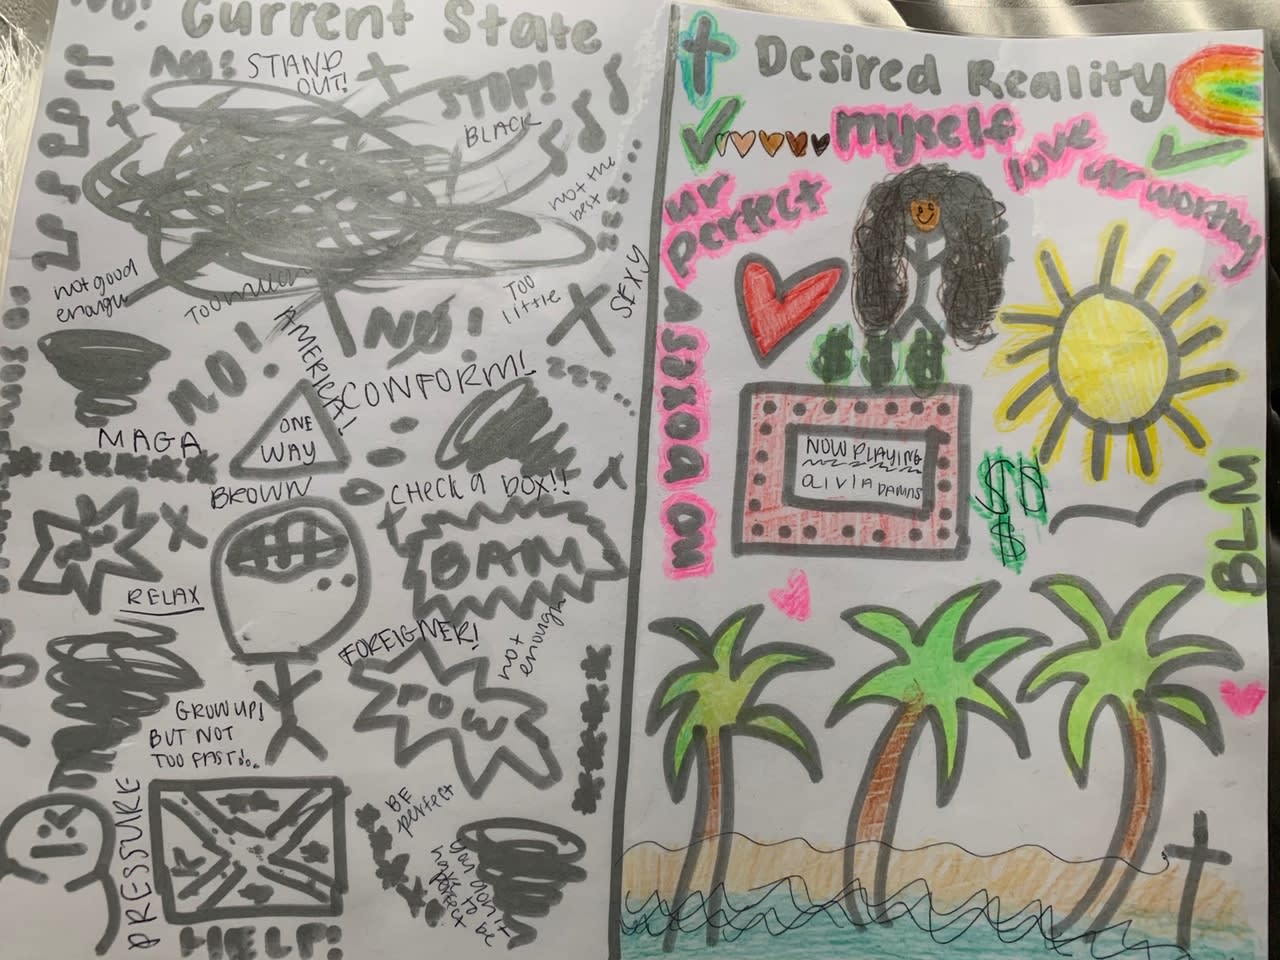 NO!
Current State
NO!
STAND
OUT!
STOP!
BLACK
not the
best
not good
enough
Too much
TOO
little
SEXY
AMERICA!
NO!
NO!
CONFORM!
MAGA
ONE
WAY
BROWN
CHECK A BOX!!
BAM
RELAX
FOREIGNER!
not
enough
POW
GROW UP!
BUT NOT
TOO FAST!
PRESSURE
BE
perfect
you don't
have to be
perfect
HELP!
Desired Reality
myself
love
ur worthy
ur
perfect
$$$
NOW PLAYING
OLIVIA
$$
$
BLM